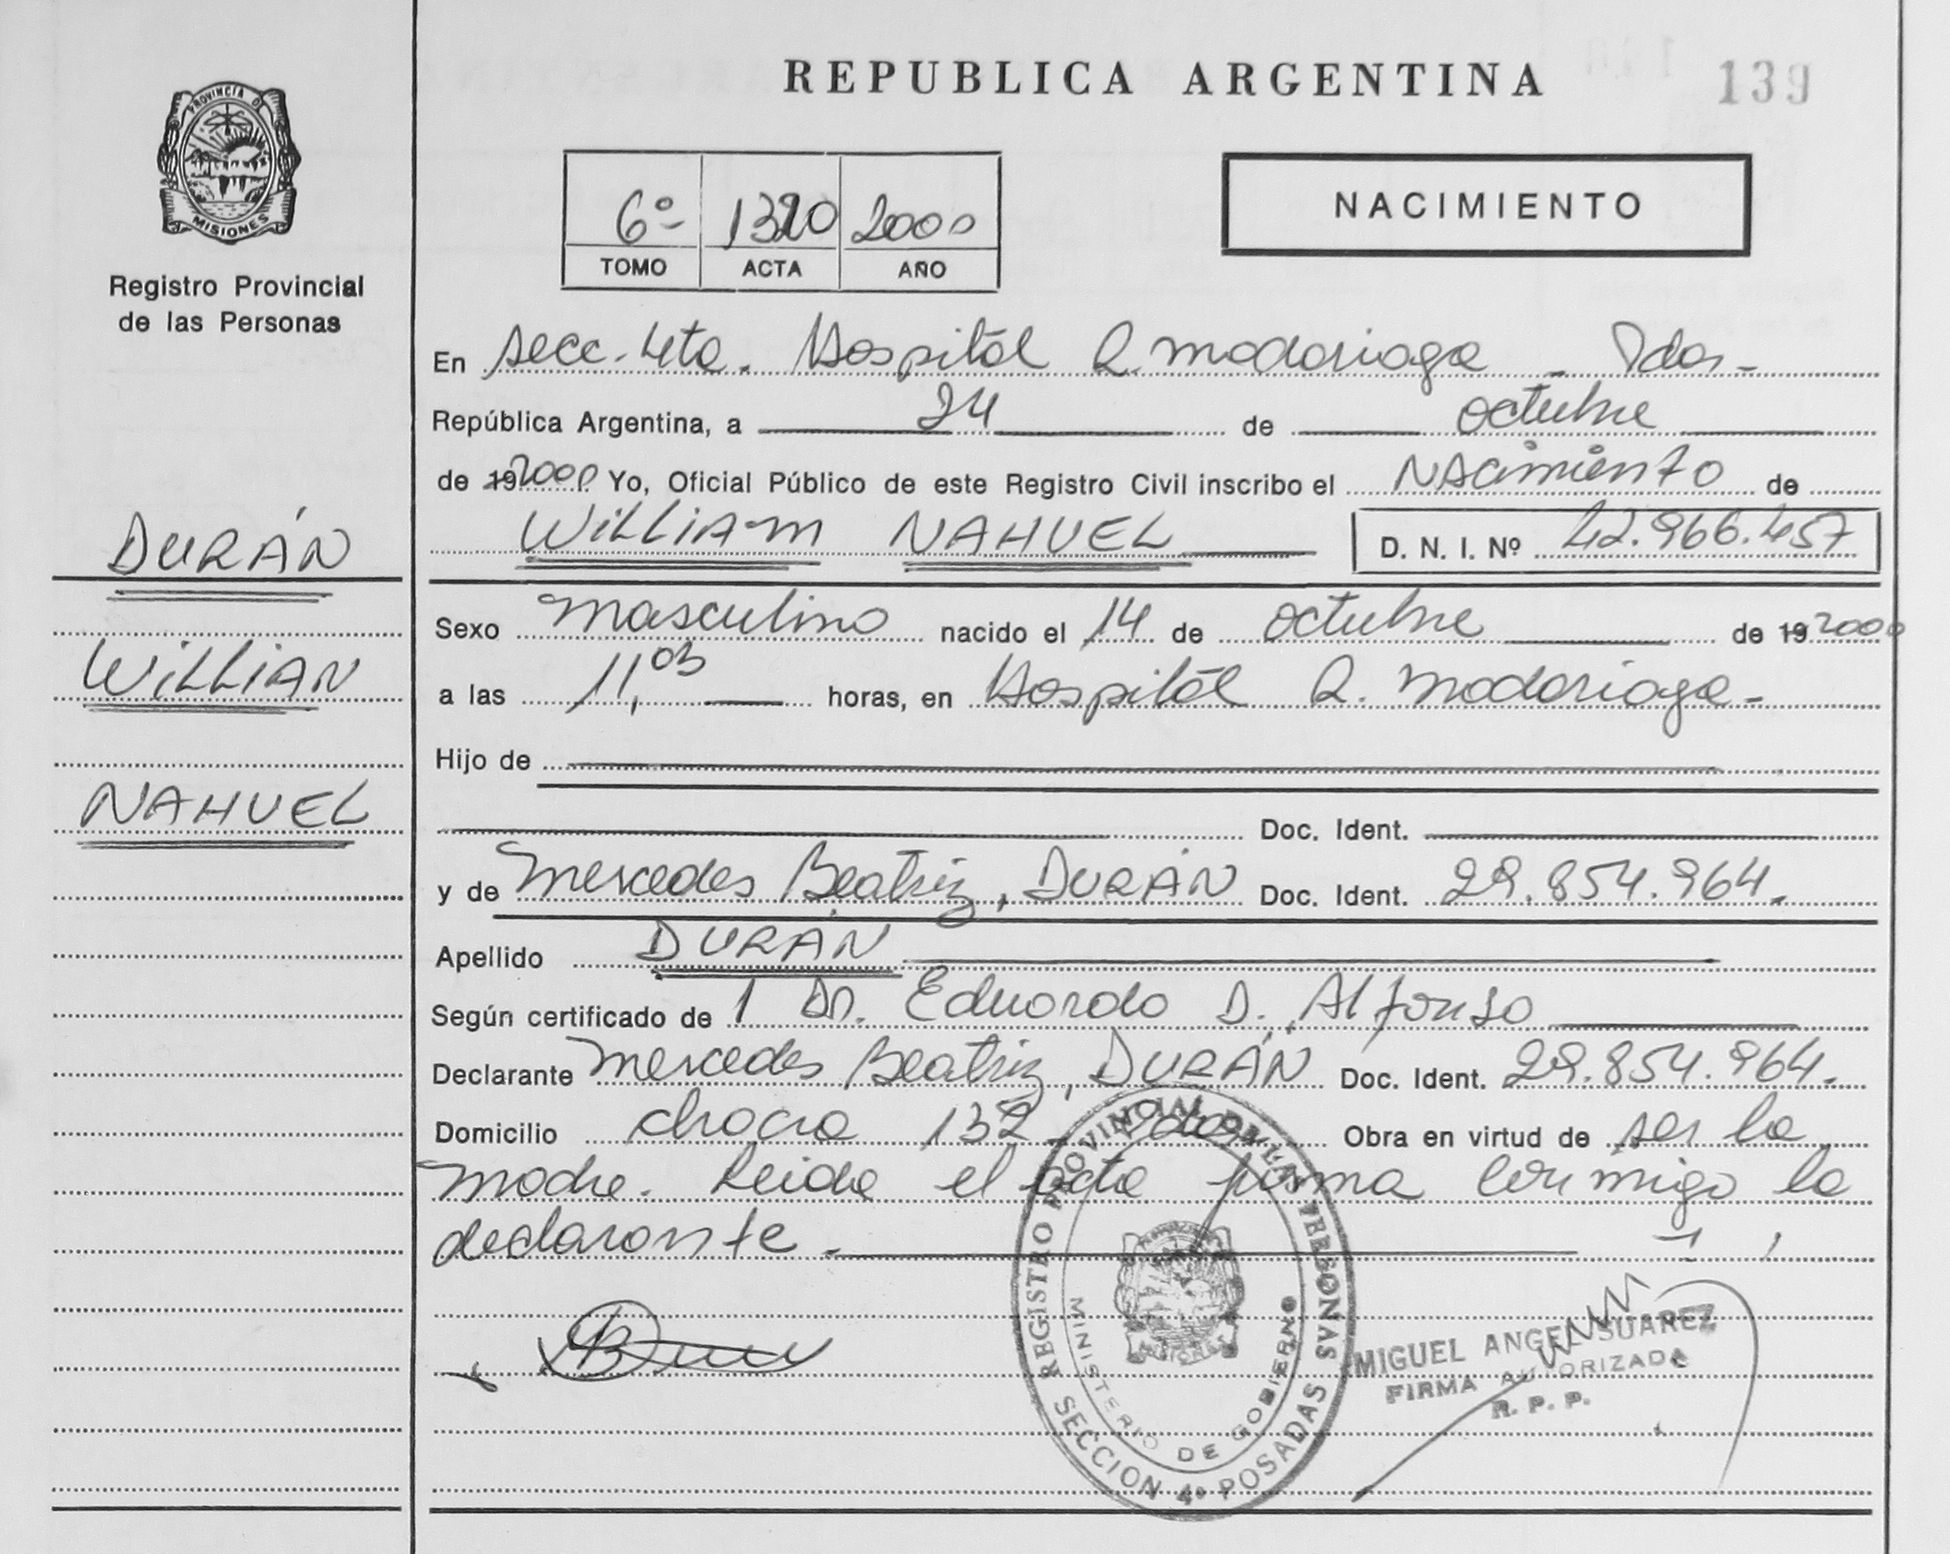 REPUBLICA ARGENTINA
139
PROVINCIA D
MISIONES
Registro Provincial
de las Personas
6º 1320 2000
TOMO ACTA AÑO
NACIMIENTO
En Secc. 4ta. Hospital R. Madariaga - Pdas -
República Argentina, a 24 de octubre
de 19 2000 Yo, Oficial Público de este Registro Civil inscribo el NAcimiento de
WilliAm NAHUEL D. N. I. Nº 42.966.457
DURÁN
WilliAN
NAHUEL
Sexo masculino nacido el 14 de octubre de 19 2000
a las 11,03 horas, en Hospital R. Madariaga -
Hijo de
Doc. Ident.
y de Mercedes Beatriz, DURÁN Doc. Ident. 29.854.964.
Apellido DURÁN
Según certificado de 1 Dr. Eduardo D. Alfonso
Declarante Mercedes Beatriz, DURÁN Doc. Ident. 29.854.964.
Domicilio chacra 132 - Pdas. Obra en virtud de ser la
madre. Leida el acta firma conmigo la
declarante.
REGISTRO PROVINCIAL DE LAS PERSONAS
MINISTERIO DE GOBIERNO
SECCION 4º POSADAS
MIGUEL ANGEL SUAREZ
FIRMA AUTORIZADA
R. P. P.